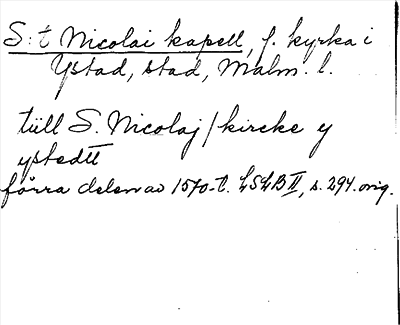 S:t Nicolai kapell, f. kyrka i
Ystad, stad, Malm. l.
tiill S. Nicolaj / kircke y
ystedtt
förra delen av 1570-t. LSLB II, s. 294. orig.